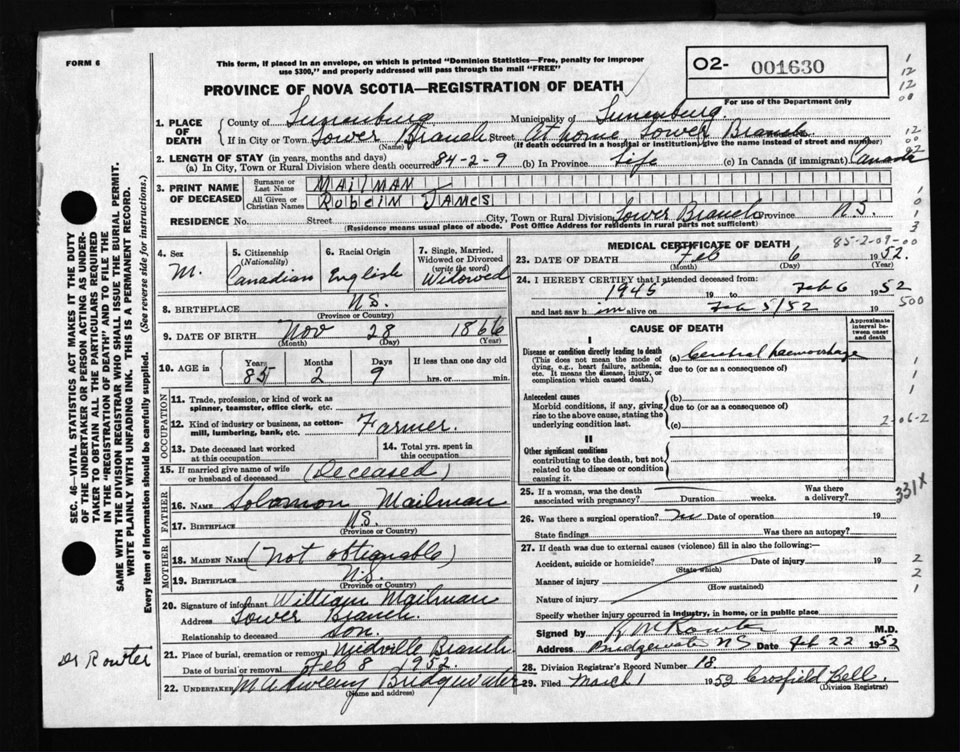 FORM 6
This form, if placed in an envelope, on which is printed "Dominion Statistics—Free, penalty for improper
use $300," and properly addressed will pass through the mail "FREE"
PROVINCE OF NOVA SCOTIA—REGISTRATION OF DEATH
O2- 001630
For use of the Department only
1. PLACE OF DEATH
County of Lunenburg Municipality of Lunenburg
If in City or Town Lower Branch Street At home Lower Branch
(Name) (If death occurred in a hospital or institution, give name instead of street and number)
2. LENGTH OF STAY (in years, months and days)
(a) In City, Town or Rural Division where death occurred 84-2-9 (b) In Province Life (c) In Canada (if immigrant) Canada
3. PRINT NAME OF DECEASED
Surname or Last Name MAILMAN
All Given or Christian Names RUBEIM JAMES
RESIDENCE No. Street City, Town or Rural Division Lower Branch Province N.S.
(Residence means usual place of abode. Post Office Address for residents in rural parts not sufficient)
4. Sex M.
5. Citizenship (Nationality) Canadian
6. Racial Origin English
7. Single, Married, Widowed or Divorced (write the word) Widowed
8. BIRTHPLACE N.S.
(Province or Country)
9. DATE OF BIRTH Nov 28 1866
(Month) (Day) (Year)
10. AGE in Years 85 Months 2 Days 9 If less than one day old
hrs. or min.
OCCUPATION
11. Trade, profession, or kind of work as
spinner, teamster, office clerk, etc.
12. Kind of industry or business, as cotton-
mill, lumbering, bank, etc. Farmer.
13. Date deceased last worked at this occupation
14. Total yrs. spent in this occupation
15. If married give name of wife
or husband of deceased (Deceased)
FATHER
16. Name Solomon Mailman
17. Birthplace N.S.
(Province or Country)
MOTHER
18. Maiden Name (Not obtainable)
19. Birthplace N.S.
(Province or Country)
20. Signature of informant William Mailman
Address Lower Branch.
Relationship to deceased Son.
21. Place of burial, cremation or removal Midville Branch
Date of burial or removal Feb 8 1952.
22. Undertaker Bridgewater
(Name and address)
MEDICAL CERTIFICATE OF DEATH
85-2-09-00
23. DATE OF DEATH Feb 6 1952.
(Month) (Day) (Year)
24. I HEREBY CERTIFY that I attended deceased from:
1945 19 to Feb 6 1952
and last saw h im alive on Feb 5/52
500
CAUSE OF DEATH
Approximate interval between onset and death
I
Disease or condition directly leading to death (a) haemorrhage
(This does not mean the mode of dying, e.g., heart failure, asthenia, etc. It means the disease, injury, or complication which caused death.)
due to (or as a consequence of)
Antecedent causes (b)
Morbid conditions, if any, giving rise to the above cause, stating the underlying condition last.
due to (or as a consequence of)
(c)
2-06-2
II
Other significant conditions
contributing to the death, but not related to the disease or condition causing it.
331X
25. If a woman, was the death associated with pregnancy? Duration weeks. Was there a delivery?
26. Was there a surgical operation? Date of operation 19
State findings Was there an autopsy?
27. If death was due to external causes (violence) fill in also the following:—
Accident, suicide or homicide? Date of injury 19
(State which)
Manner of injury
(How sustained)
Nature of injury
Specify whether injury occurred in industry, in home, or in public place
Signed by M.D.
Address Bridgewater NS Date Feb 22 1952
28. Division Registrar's Record Number 18
29. Filed March 1 1952 Crosfield Bell.
(Division Registrar)
SEC. 46—VITAL STATISTICS ACT MAKES IT THE DUTY
OF THE UNDERTAKER OR PERSON ACTING AS UNDER-
TAKER TO OBTAIN ALL THE PARTICULARS REQUIRED
IN THE "REGISTRATION OF DEATH" AND TO FILE THE
SAME WITH THE DIVISION REGISTRAR WHO SHALL ISSUE THE BURIAL PERMIT.
WRITE PLAINLY WITH UNFADING INK. THIS IS A PERMANENT RECORD.
Every item of information should be carefully supplied. (See reverse side for instructions.)
Dr Rowter